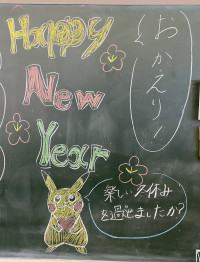 Happy
New
Year
おかえり!
楽しい冬休み
を過ごましたか?